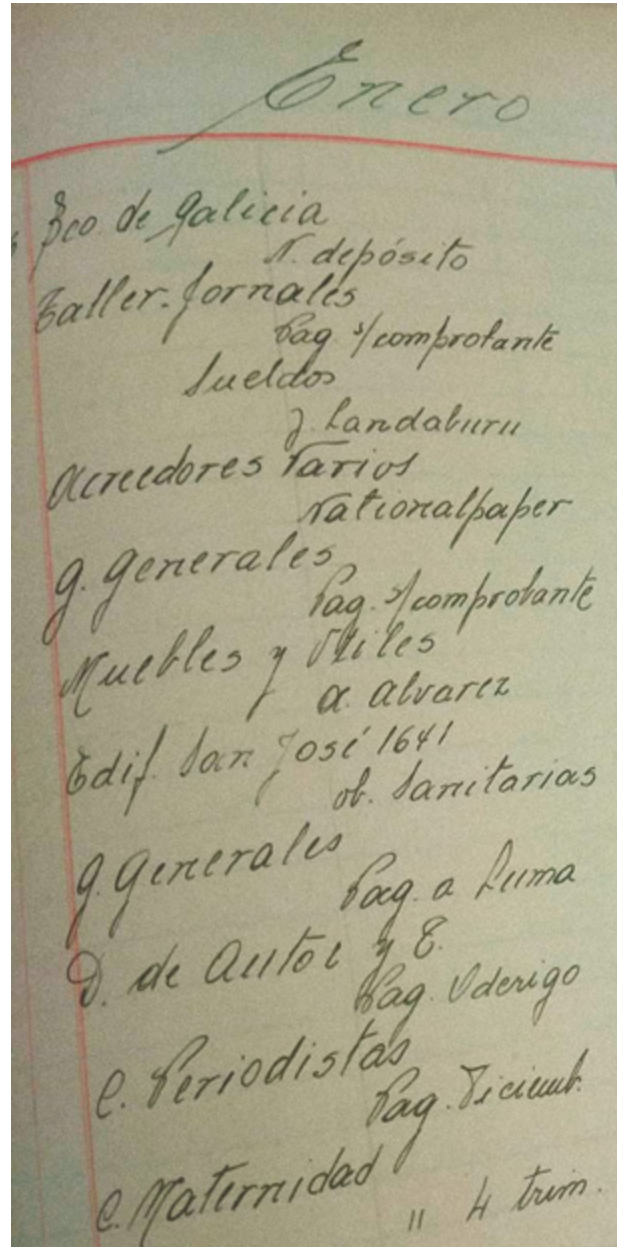 Enero
Bco. de Galicia
N. depósito
Taller. Jornales
Pag. s/comprobante
Sueldos
J. Landaburu
Acreedores Varios
Nationalpaper
G. Generales
Pag. s/comprobante
Muebles y Útiles
A. Alvarez
Edif. San José 1641
ob. Sanitarias
G. Generales
Pag. a Luma
D. de Autor y T.
Pag. Oderigo
C. Periodistas
Pag. Diciemb.
C. Maternidad
" 4 trim.